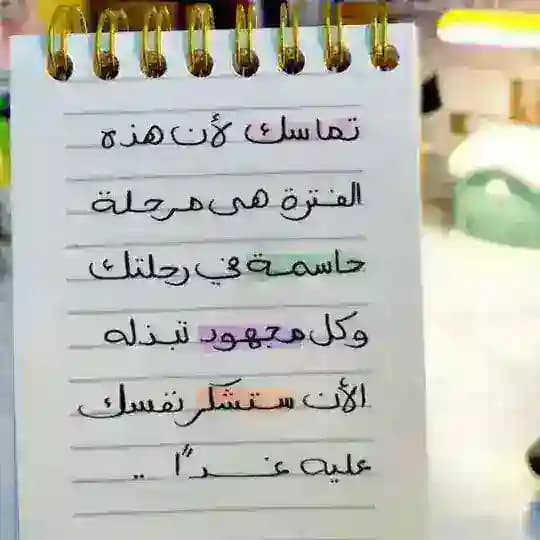 تماسك لأن هذه
الفترة هى مرحلة
حاسمة في رحلتك
وكل مجهود تبذله
الأن ستشكر نفسك
عليه غداً ..